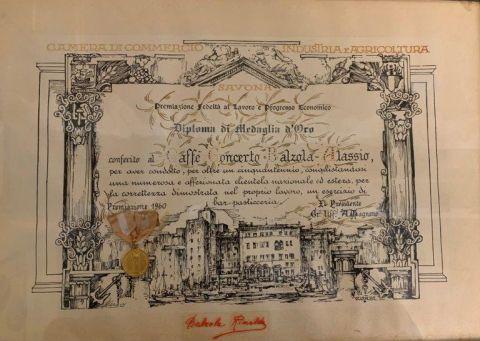 CAMERA DI COMMERCIO INDUSTRIA E AGRICOLTURA
SAVONA
Premiazione Fedeltà al Lavoro e Progresso Economico
Diploma di Medaglia d'Oro
conferito al Kaffè Concerto-Balzola-Alassio,
per aver condotto, per oltre un cinquantennio, conquistandosi
una numerosa e affezionata clientela nazionale ed estera, per
la correttezza dimostrata nel proprio lavoro, un esercizio di
bar-pasticceria.
Premiazione 1960
Il Presidente
Gr. Uff. A.
Balzola Rinaldo